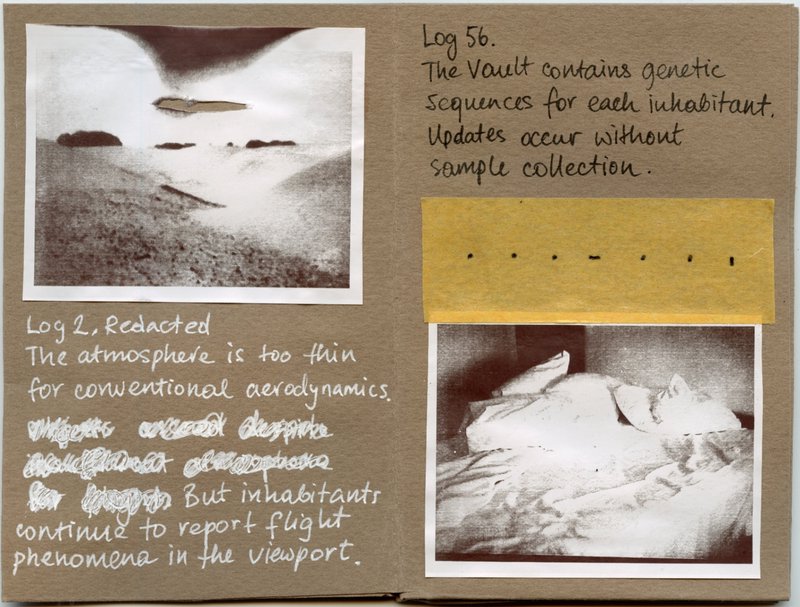 Log 2, Redacted
The atmosphere is too thin
for conventional aerodynamics.
But inhabitants
continue to report flight
phenomena in the viewport.
Log 56.
The Vault contains genetic
sequences for each inhabitant.
Updates occur without
sample collection.